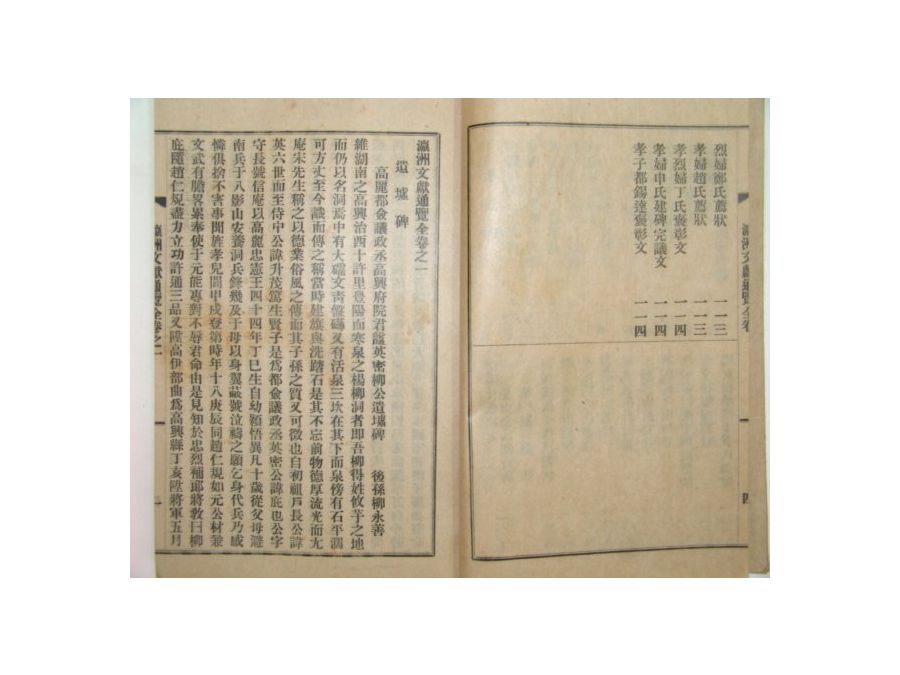 瀛洲文獻通覽全卷
烈婦鄭氏薦狀 一一三
孝婦趙氏薦狀 一一三
孝烈婦丁氏褒彰文 一一四
孝婦申氏建碑完議文 一一四
孝子都錫達褒彰文 一一四
四
瀛洲文獻通覽全卷之一
遺墟碑
高麗都僉議政丞高興府院君諡英密柳公遺墟碑 後孫柳永善
維湖南之高興治西十許里豊陽面寒泉之楊柳洞者即吾柳得姓攸芋之地
而仍以名洞焉中有大礌文靑盤礴又有活泉三坎在其下而泉傍有石平濶
可方丈至今識而傳之稱當時建旗與洗踏石是其不忘前物德厚流光而尤
庵宋先生稱之以德業俗風之傳而其子孫之質又可徵也自初祖戶長公諱
英六世而至侍中公諱升茂篤生賢子是爲都僉議政丞英密公諱庇也公字
守長號信庵以高麗忠憲王四十四年丁巳生自幼穎悟異凡十歲從父母避
南兵于八影山安養洞兵鋒幾及于母以身翼蔽號泣禱之願乞身代兵乃感
憐俱捨不害事聞旌孝兒閭甲戌登第時年十八庚辰同趙仁規如元公材兼
文武有膽畧累奉使于元能專對不辱君命由是見知於忠烈補郞將敎曰柳
庇隨趙仁規盡力立功許通三品又陞高伊部曲爲高興縣丁亥陞將軍五月
瀛洲文獻通覽全卷之一
一